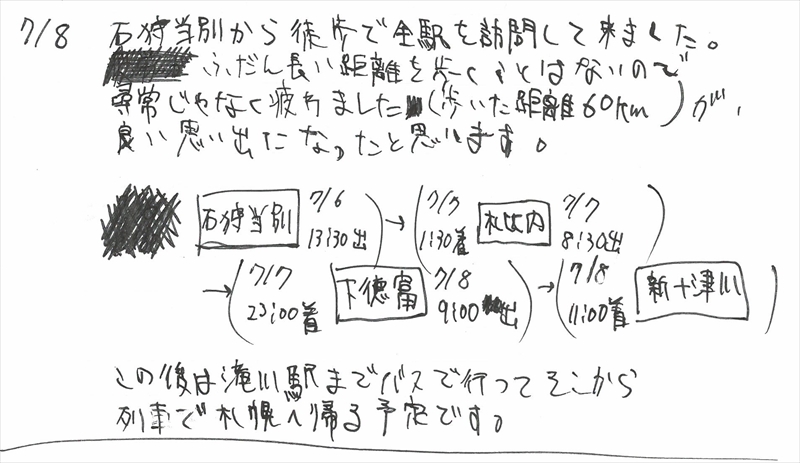 7/8 石狩当別から徒歩で全駅を訪問して来ました。
ふだん長い距離を歩くことはないので
尋常じゃなく疲れました(歩いた距離60km)が、
良い思い出になったと思います。
石狩当別 7/6 13:30出 → 7/7 1:30着 札比内 7/7 8:30出
→ 7/7 23:00着 下徳富 7/8 9:00出 → 7/8 11:00着 新十津川
この後は滝川駅までバスで行ってそこから
列車で札幌へ帰る予定です。